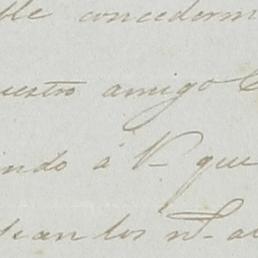 ble concederm
uestro amigo
indo á V. que
sean los